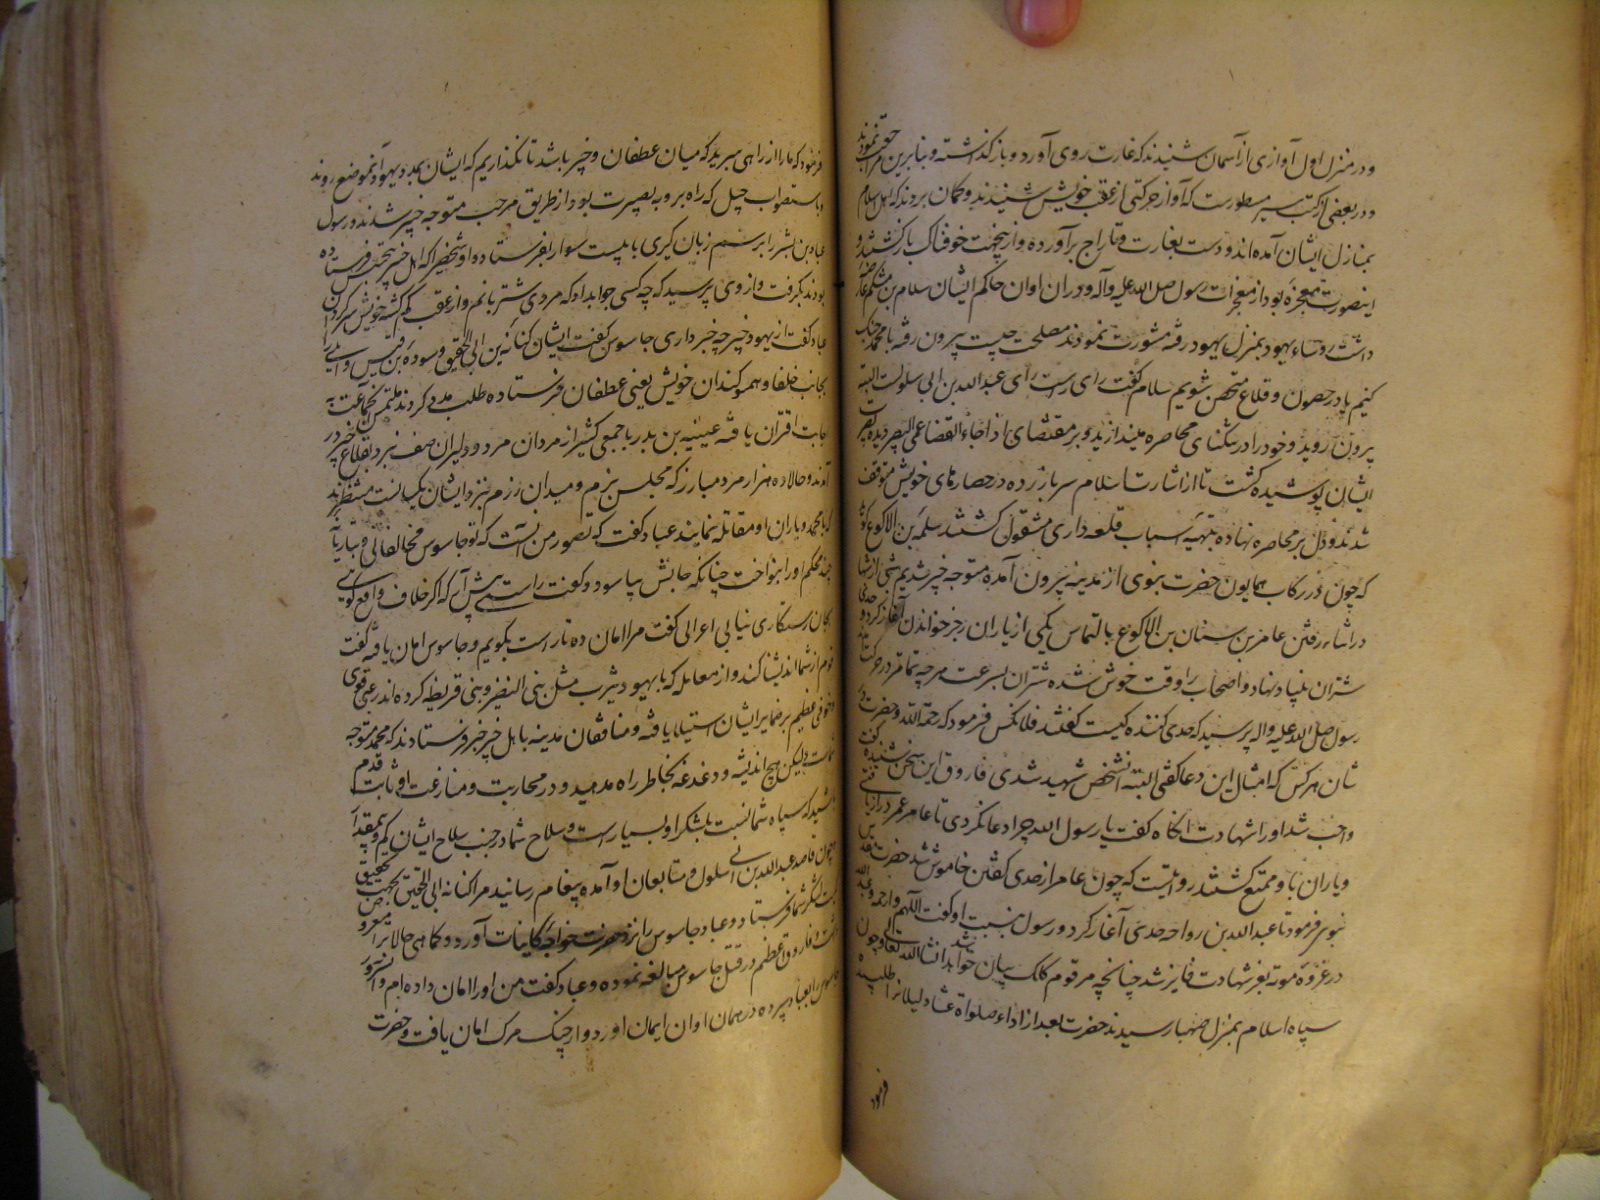 و در منزل اول آوازی از آسمان شنیدند که غارت روی آورد و باز گذشته و بنابرین مراجعت نمودند
و در بعضی از کتب سیر مسطورست که آواز حرکتی از عقب خویش شنیدند و گمان بردند که اهل اسلام
بمنازل ایشان آمده اند و دست بغارت و تاراج برآورده و از بیجهت خوفناک بازگشتند و
اینصورت معجزه بود از معجزات رسول صلی الله علیه وآله و در ان اوان حاکم ایشان سلام بن مشکم
داشت رؤساء یهود بمنزل یهود رفته مشورت نمودند مصلحت چیست بیرون رفته با محمد جنگ
کنیم یا در حصون و قلاع متحصن شویم سلام گفت رای راست رای عبدالله بن ابی سلولست البته
بیرون روید و خود را در تنکنای محاصره میندازید و بر مقتضای اذا جاء القضا عمی البصر دیده
ایشان پوشیده گشت تا از اشارت سلام سر باز زده در حصارهای خویش متوقف
شدند و دل بر محاصره نهاده بتهیه اسباب قلعه داری مشغول گشتند سلمة بن الاکوع گوید
که چون در رکاب همایون حضرت نبوی از مدینه بیرون آمده متوجه خیبر شدیم شبی از شبها
در اثناء رفتن عامر بن سنان بن الاکوع بالتماس یکی از یاران رجز خواندن آغاز کرد و حدی
شتران بنیاد نهاد و اصحاب را وقت خوش شده شتران بسرعت هرچه تمامتر در حرکت
رسول صلی الله علیه واله پرسید که حدی کننده کیست گفتند فلانکس فرمود که رحمة الله و حضرت
شان هرکس که امثال این دعا گفتی البته انشخص شهید شدی فاروق این سخن شنیده گفت
واجب شد او را شهادت انکاه گفت یا رسول الله چرا دعا نکردی تا عامر عمر دراز یافتی
و یاران با و متمتع گشتند روایتست که چون عامر از حدی گفتن خاموش شد حضرت مقدس
نبوی فرمود تا عبدالله بن رواحه حدی آغاز کرد و رسول بنسبت او گفت اللهم وارحمه و عبدالله
در غزوه موته بعز شهادت فایز شد چنانچه مرقوم کلک بیان خواهد شد انشاالله تعالی و چون
سپاه اسلام بمنزل صهبا رسیدند حضرت بعد از اداء صلواة عشا دلیلانرا طلبیده
فرمود
فرمود که ما را از راهی ببرید که میان عطفان و خیبر باشد تا نگذاریم که ایشان بمدد یهود آنموضع روند
و باستصواب حسل که راه برو به بصیرت بود از طریق مرحب متوجه خیبر شدند و رسول
عباد بن بشر را برسم زبان گیری با بیست سوار بفرستاد و او شخصیرا که اهل خیبر بتجسس فرستاده
بودند بگرفت و از وی پرسید که چه کسی جواب داد که مردی شتربانم و از عقب گم گشته خویش سرگردان
عباد گفت از یهود خیبر چه خبر داری جاسوس گفت ایشان کنانة بن ابی الحقیق و سودة بن قیس و
بجانب خلفا و هم سوکندان خویش یعنی عطفان فرستاده طلب مدد کردند ملتمس انجماعت به
اجابت اقتران یافته عیینه بن بدر با جمعی کثیر از مردان مرد و دلیران صف نبرد بقلاع خیبر در
آمدند و حالا ده هزار مرد مبارز که مجلس بزم و میدان رزم نزد ایشان یکیانست منتظرند
که با محمد و یاران او مقاتله نمایند عباد گفت که تصور من آنست که تو جاسوس مخالفانی و بتازیانه
چند محکم او را بنواخت چنانکه جانش بیاسود و گفت راستی پیش آر که اگر خلاف واقع گویی
بجان رستکاری نیابی اعرابی گفت مرا امان ده تا راست بگویم و جاسوس امان یافته گفت
قوم از شما اندیشناکند و از معامله که با یهود یثرب مثل بنی النضیر و بنی قریظه کرده اند رعبی قوی
و خوفی عظیم بر ضمایر ایشان استیلا یافته و منافقان مدینه باهل خیبر خبر فرستادند که محمد متوجه
شماست ولیکن هیچ اندیشه و دغدغه بخاطر راه مدهید و در محاربت و منازعت او ثابت قدم
باشید که سپاه شما نسبت بلشکر او بسیارست و سلاح شما در جنب سلاح ایشان
چون قاصد عبدالله بن ابی سلول و متابعان او آمده پیغام رسانید مرا کنانه ابی الحقیق بجهت تحقیق
لشکر شما فرستاد و عباد جاسوس را نزد حضرت خواجه کاینات آورد و کماهی حالا را معروض
داشت فاروق اعظم در قتل جاسوس مبالغه نموده و عباد گفت من او را امان داده ام و آنسرور
جاسوس را بعباد سپرده در همان اوان ایمان آورد و از چنگ مرگ امان یافت و حضرت